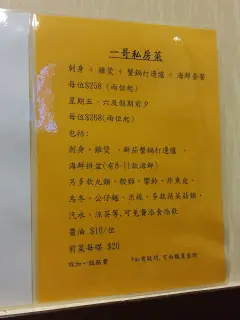 二哥私房菜
刺身 + 雞煲 + 蟹鍋打邊爐 + 海鮮套餐
每位$258 (兩位起)
星期五、六及假期前夕
每位$268(兩位起)
包括:
刺身、雞煲、鮮茄蟹鍋打邊爐、
海鮮拼盆(有8-11款海鮮)
另多款丸類、餃類、響鈴、炸魚皮、
烏冬、公仔麵、米線、多款蔬菜菇類、
汽水、涼茶等,可免費添食添飲
醬油 $10/位
前菜每碟 $20
設加一服務費
*如有疑問,可向職員查詢